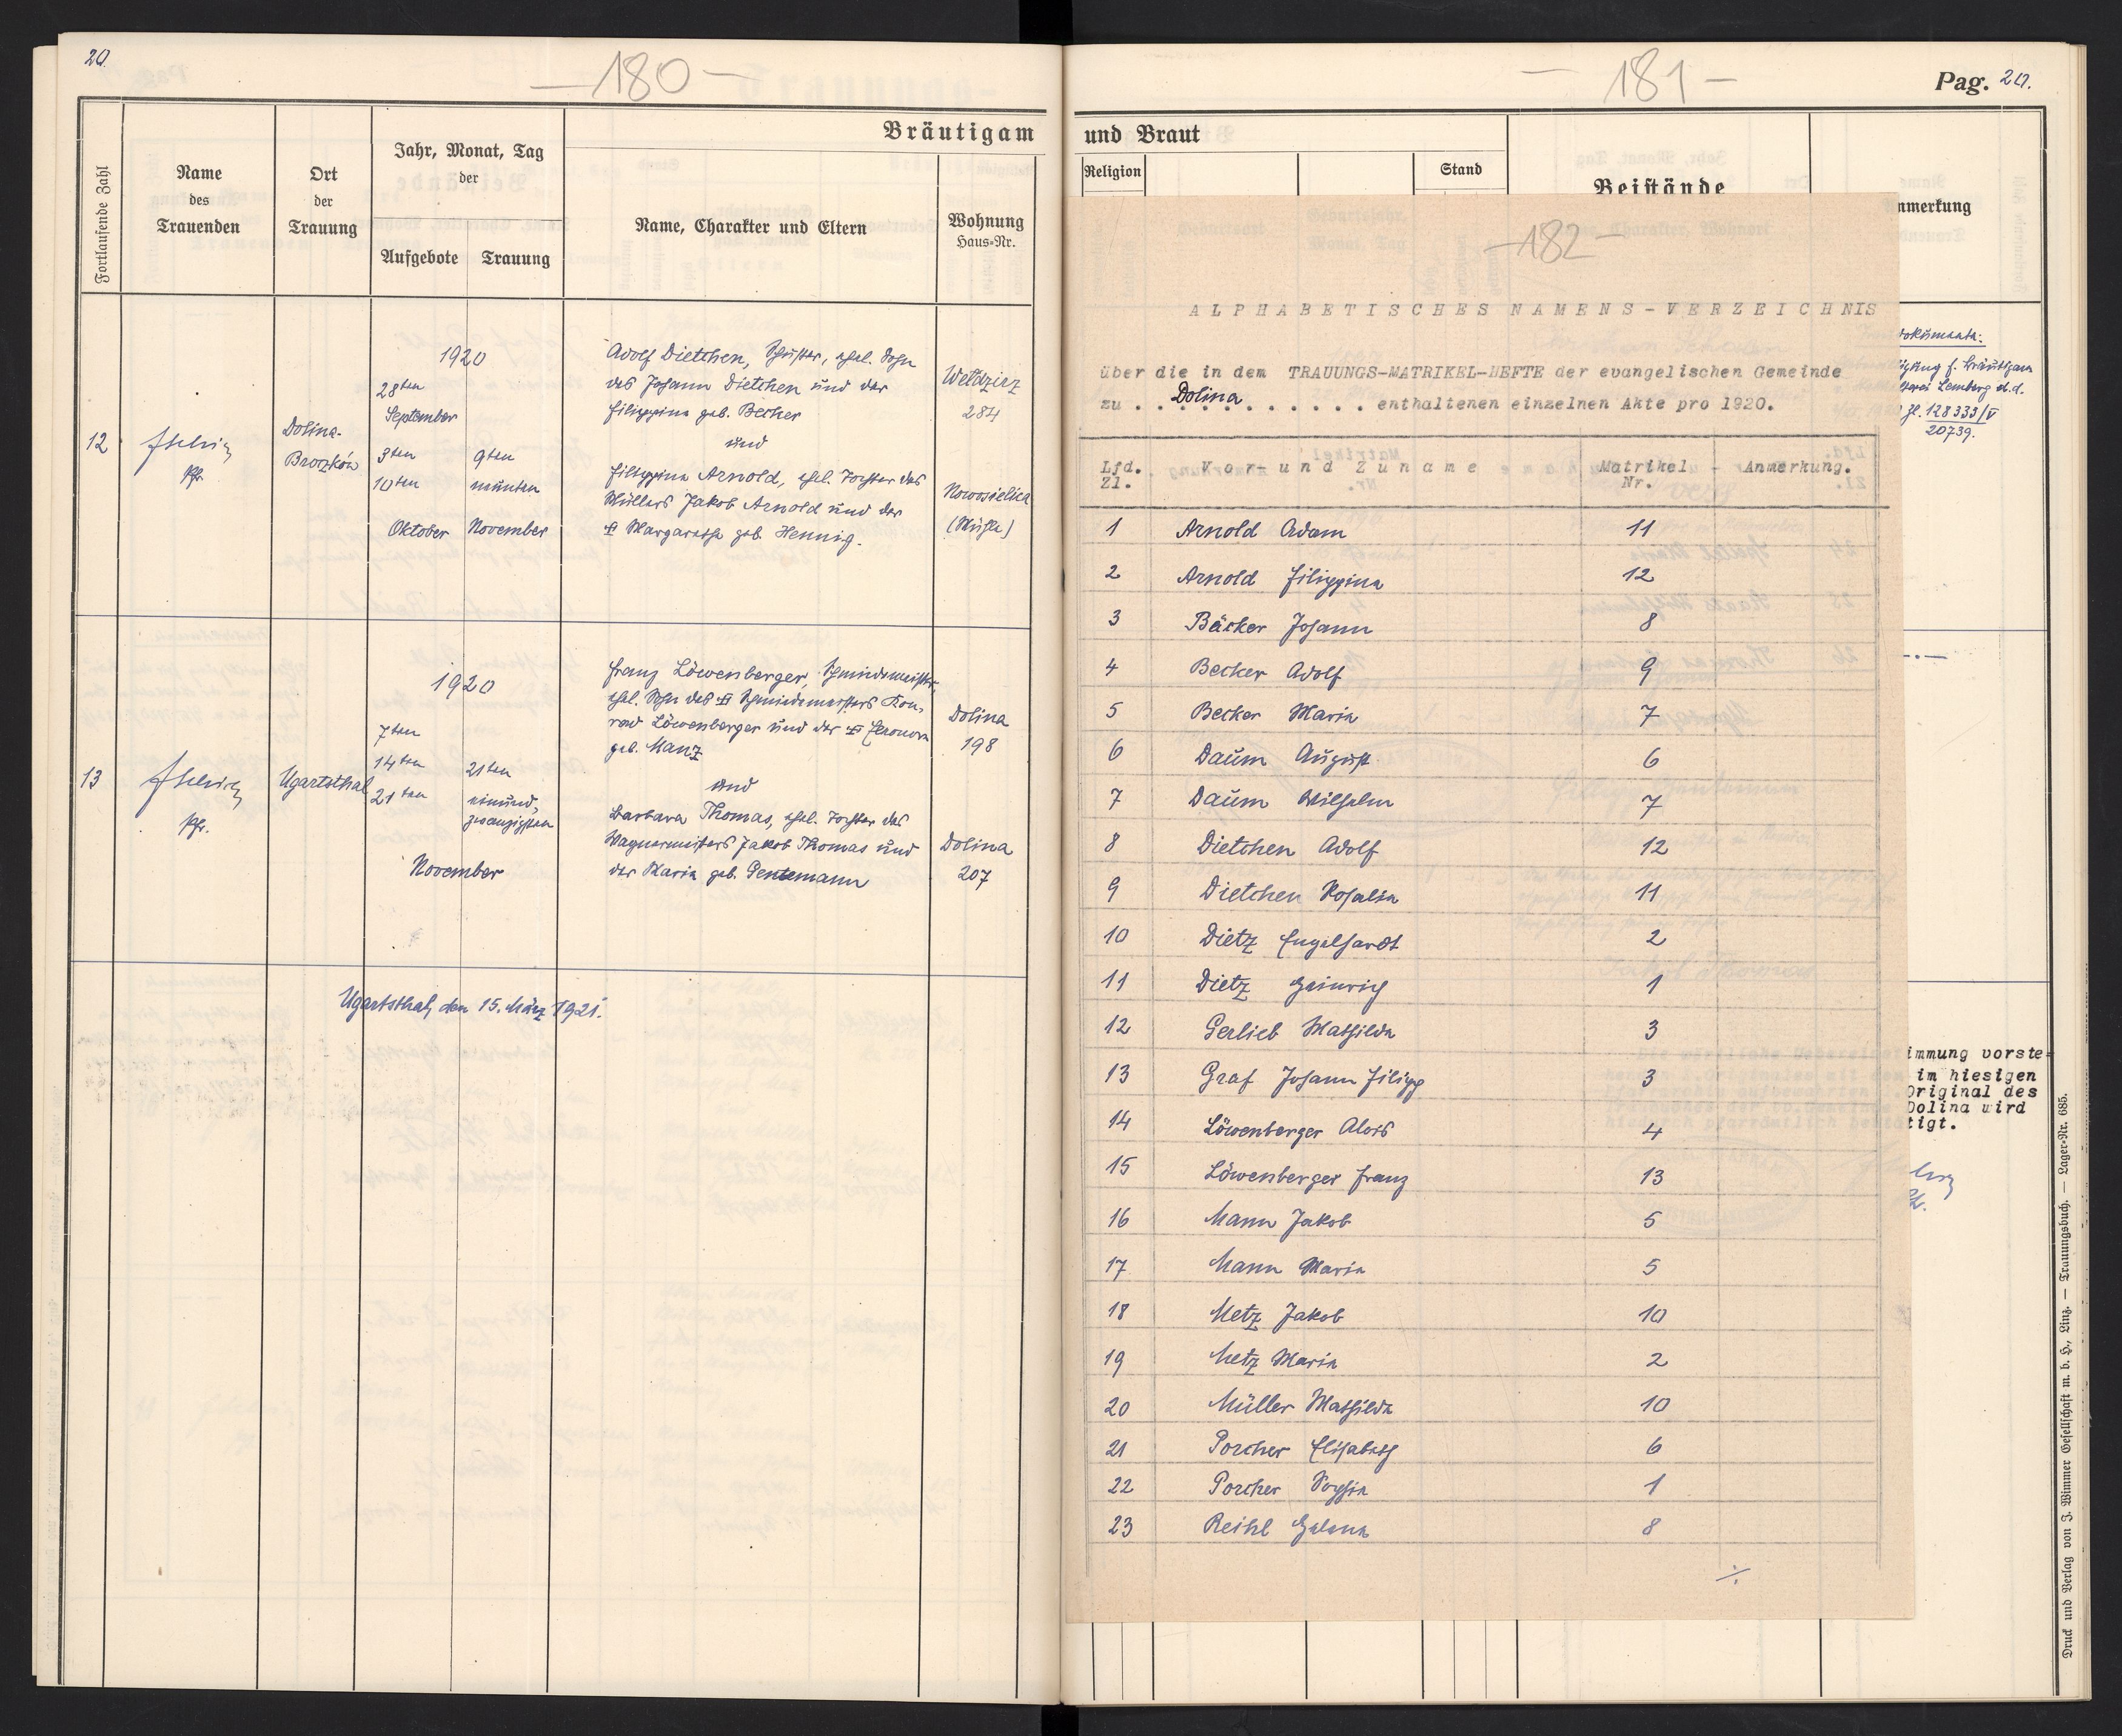 20.
— 180 —
Bräutigam
Fortlaufende Zahl
Name
des
Trauenden
Ort
der
Trauung
Jahr, Monat, Tag
der
Aufgebote
Trauung
Name, Charakter und Eltern
Wohnung
Haus=Nr.
12
Pfr.
Dolina-
Broczków
1920
28ten
September
3ten
10ten
Oktober
9ten
neunten
November
Adolf Dietchen, Schuster, ehel. Sohn
des Johann Dietchen und der
Filippina geb. Becker
und
Filippina Arnold, ehel. Tochter des
Müllers Jakob Arnold und der
Margaretha geb. Hennig.
Wełdzirz
284
Nowosielica
(Mühle)
13
Pfr.
Ugartsthal
1920
7ten
14ten
21ten
21ten
einund,
zwanzigsten
November
Franz Löwenberger, Schmiedemeister,
ehel. Sohn des Schmiedemeisters Kon,
rad Löwenberger und der
geb. Manz
und
Barbara Thomas, ehel. Tochter des
Wagnermeisters Jakob Thomas und
der Maria geb. Gentemann
Dolina
198
Dolina
207
Ugartsthal, den 15. März 1921.
— 181 —
Pag. 20.
und Braut
Religion
Stand
Beistände
nmerkung
— 182 —
ALPHABETISCHES NAMENS-VERZEICHNIS
über die in dem TRAUUNGS-MATRIKEL-HEFTE der evangelischen Gemeinde
zu . . Dolina . . . . . . . enthaltenen einzelnen Akte pro 1920.
Lfd. Zl. Vor- und Zuname Matrikel Nr. - Anmerkung.
1 Arnold Adam 11
2 Arnold Filippina 12
3 Bäcker Johann 8
4 Becker Adolf 9
5 Becker Maria 7
6 Daum August 6
7 Daum Wilhelm 7
8 Dietchen Adolf 12
9 Dietchen Rosalia 11
10 Dietz Engelhardt 2
11 Dietz Heinrich 1
12 Gerlieb Mathilda 3
13 Graf Johann Filipp 3
14 Löwenberger Alois 4
15 Löwenberger Franz 13
16 Mann Jakob 5
17 Mann Maria 5
18 Metz Jakob 10
19 Metz Maria 2
20 Müller Mathilda 10
21 Porcher Elisabeth 6
22 Porcher Sophia 1
23 Reihl Helena 8
./.
okumente:
igung f. Bräutigam
Lemberg d.d.
Zl. 128333/V
20739.
immung vorste=
im hiesigen
Original des
Dolina wird
tigt.
Druck und Verlag von J. Wimmer Gesellschaft m. b. H., Linz. — Trauungsbuch. — Lager=Nr. 685.